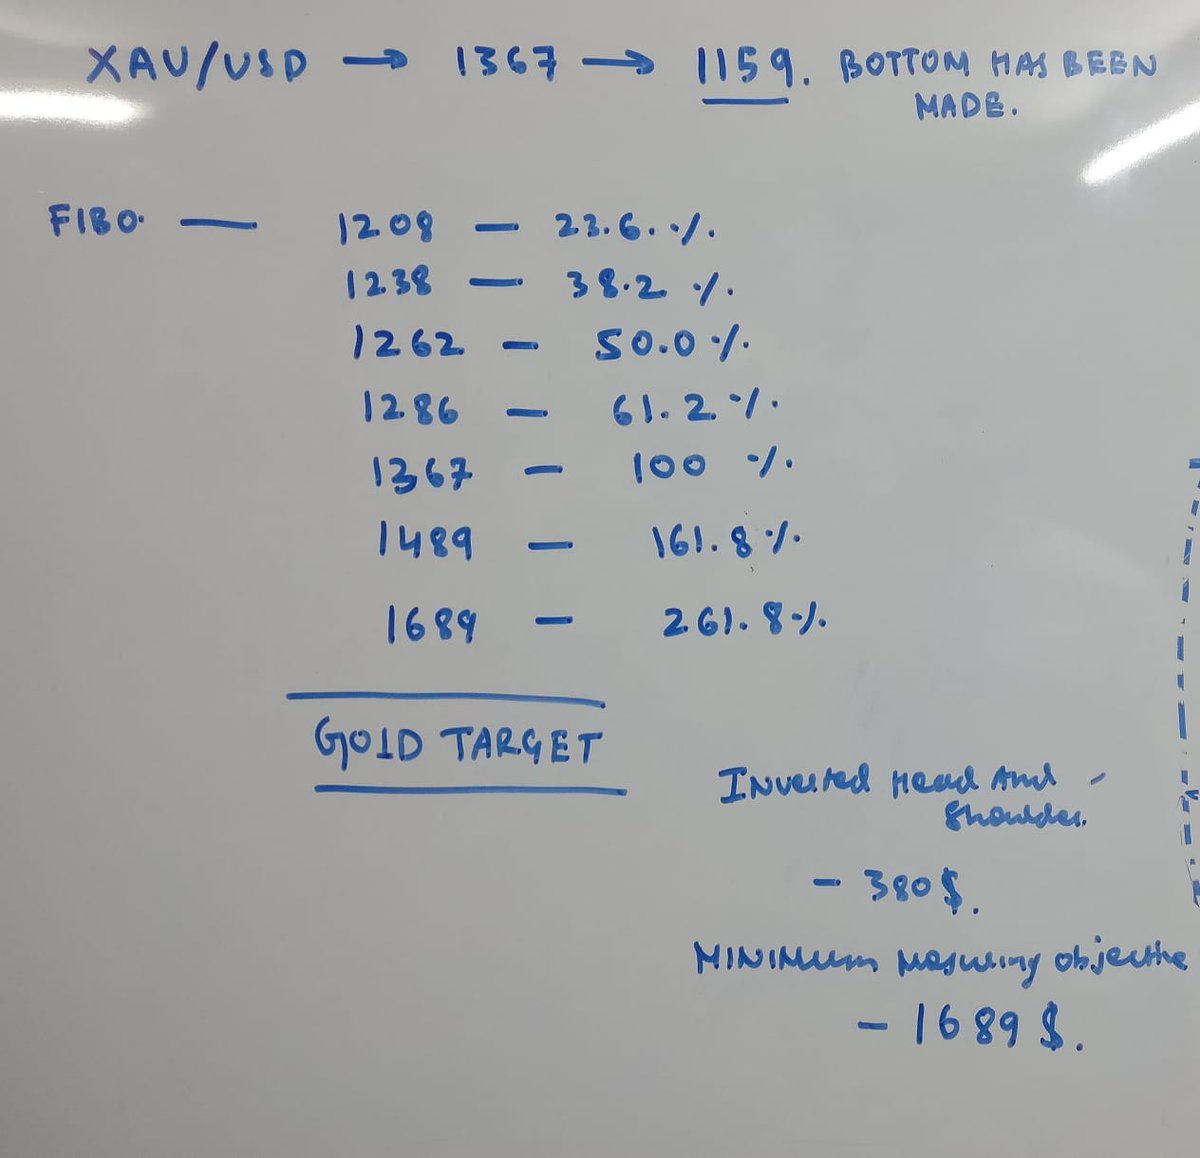 XAU/USD → 1367 → 1159. BOTTOM HAS BEEN
MADE.
FIBO. — 1208 — 23.6. %.
1238 — 38.2 %.
1262 — 50.0 %.
1286 — 61.2 %.
1367 — 100 %.
1489 — 161.8 %.
1689 — 261.8 %.
GOLD TARGET
Inverted Head And -
Shoulder.
- 380$.
MINIMUM Measuring objective
- 1689 $.